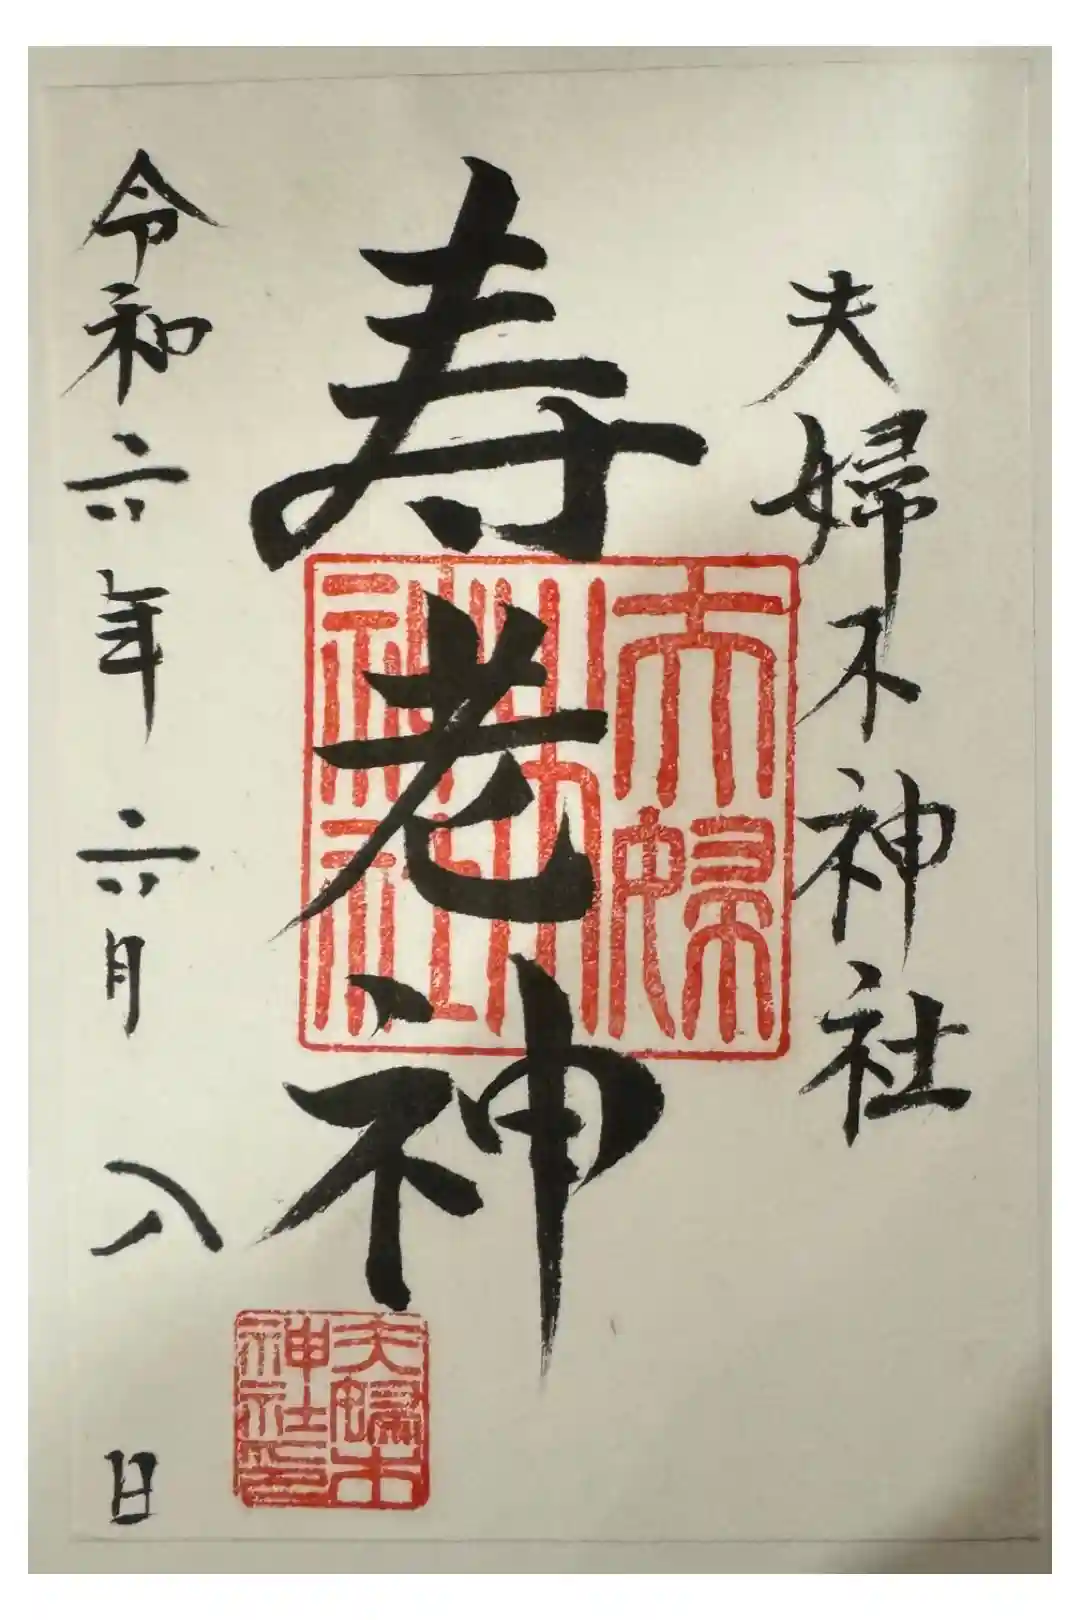 夫婦木神社
寿老神
令和六年六月八日
夫婦木神社
夫婦木神社印